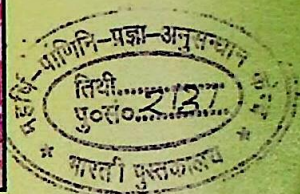 महर्षि-पाणिनि-प्रज्ञा-अनुसन्धान केन्द्र
तिथी..............
पु०सं०..2131..
* भारती पुस्तकालय *